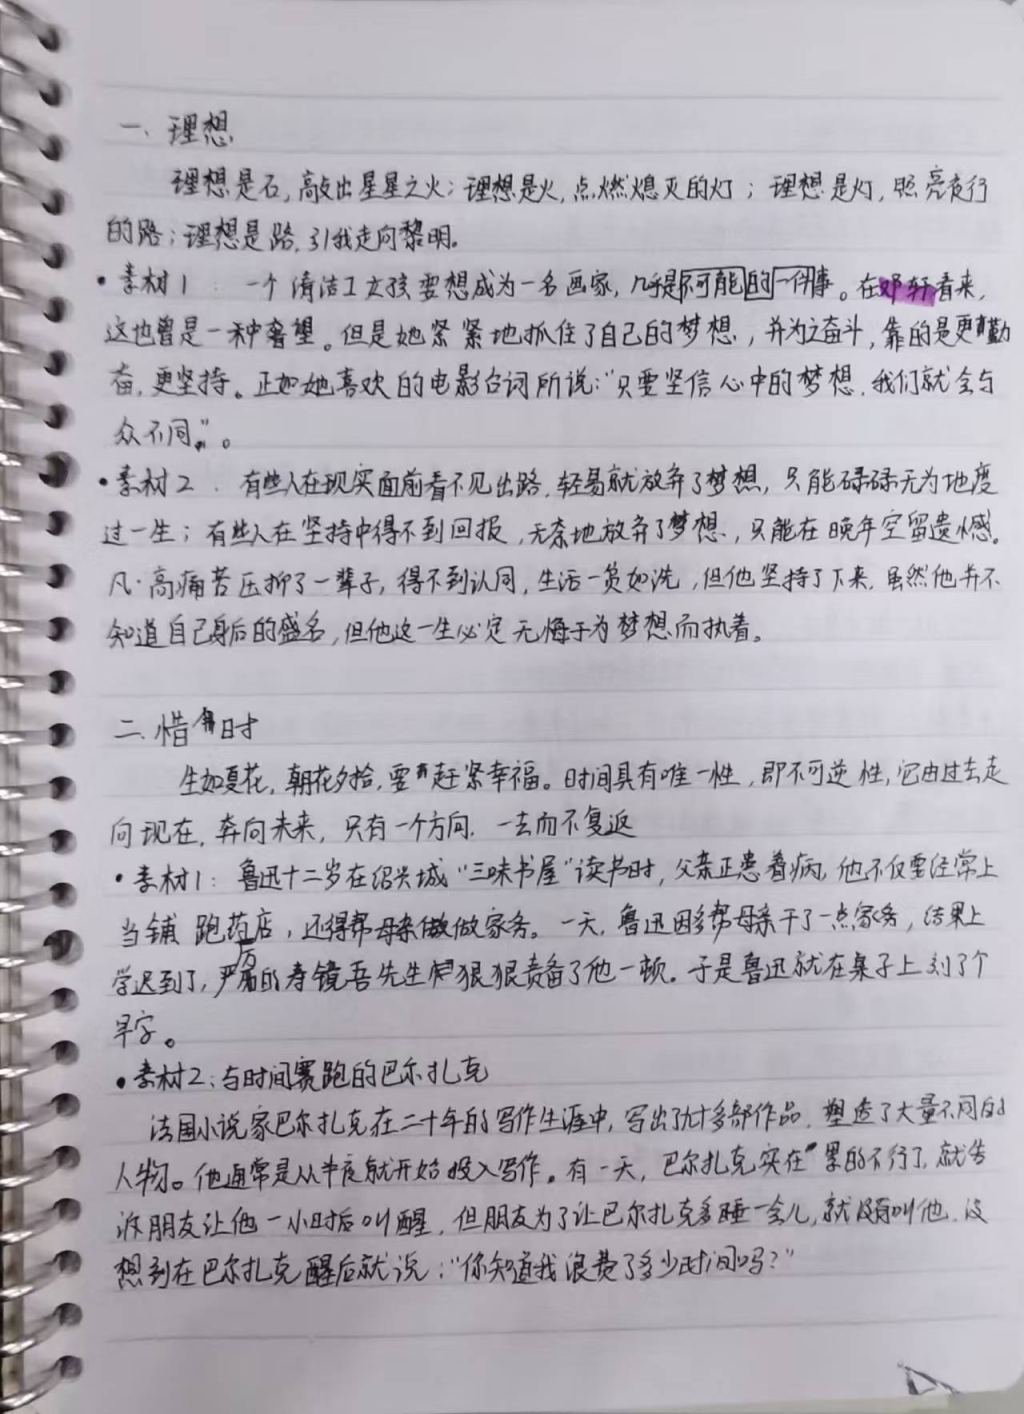 一、理想
理想是石,敲出星星之火;理想是火,点燃熄灭的灯;理想是灯,照亮夜行
的路;理想是路,引我走向黎明。
•素材1:一个清洁工女孩要想成为一名画家,几乎是不可能的一件事。在邓轩看来,
这也曾是一种奢望。但是她紧紧地抓住了自己的梦想,并为之奋斗,靠的是更勤
奋,更坚持。正如她喜欢的电影台词所说:“只要坚信心中的梦想,我们就会与
众不同。”。
•素材2:有些人在现实面前看不见出路,轻易就放弃了梦想,只能碌碌无为地度
过一生;有些人在坚持中得不到回报,无奈地放弃了梦想,只能在晚年空留遗憾。
凡·高痛苦压抑了一辈子,得不到认同,生活一贫如洗,但他坚持了下来,虽然他并不
知道自己身后的盛名,但他这一生必定无悔于为梦想而执着。
二、惜时
生如夏花,朝花夕拾,要赶紧幸福。时间具有唯一性,即不可逆性,它由过去走
向现在,奔向未来,只有一个方向,一去而不复返
•素材1:鲁迅十二岁在绍兴城“三味书屋”读书时,父亲正患着病,他不仅要经常上
当铺 跑药店,还得帮母亲做做家务。一天,鲁迅因多帮母亲干了一点家务,结果上
学迟到了,严厉的寿镜吾先生狠狠责备了他一顿。于是鲁迅就在桌子上刻了个
早字。
•素材2:与时间赛跑的巴尔扎克
法国小说家巴尔扎克在二十年的写作生涯中,写出了九十多部作品,塑造了大量不同的
人物。他通常是从半夜就开始投入写作。有一天,巴尔扎克实在累的不行了,就告
诉朋友让他一小时后叫醒,但朋友为了让巴尔扎克多睡一会儿,就没有叫他,没
想到在巴尔扎克醒后就说:“你知道我浪费了多少时间吗?”